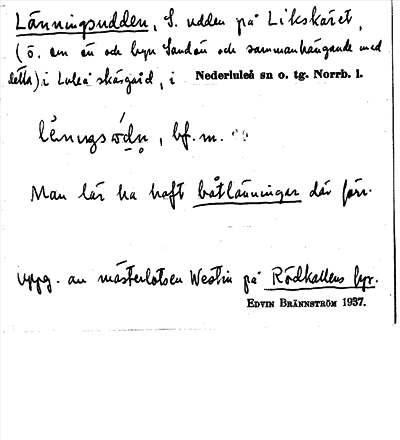 Länningsudden, S. udden på Likskäret,
(ö. om ön och byn Sandön och sammanhängande med
detta) i Luleå skärgård, i Nederluleå sn o. tg. Norrb. l.
bf. m.
Man lär ha haft båtlänningar där förr.
Uppg. av mästerlotsen Westin på Rödkallens fyr.
EDVIN BRÄNNSTRÖM 1937.